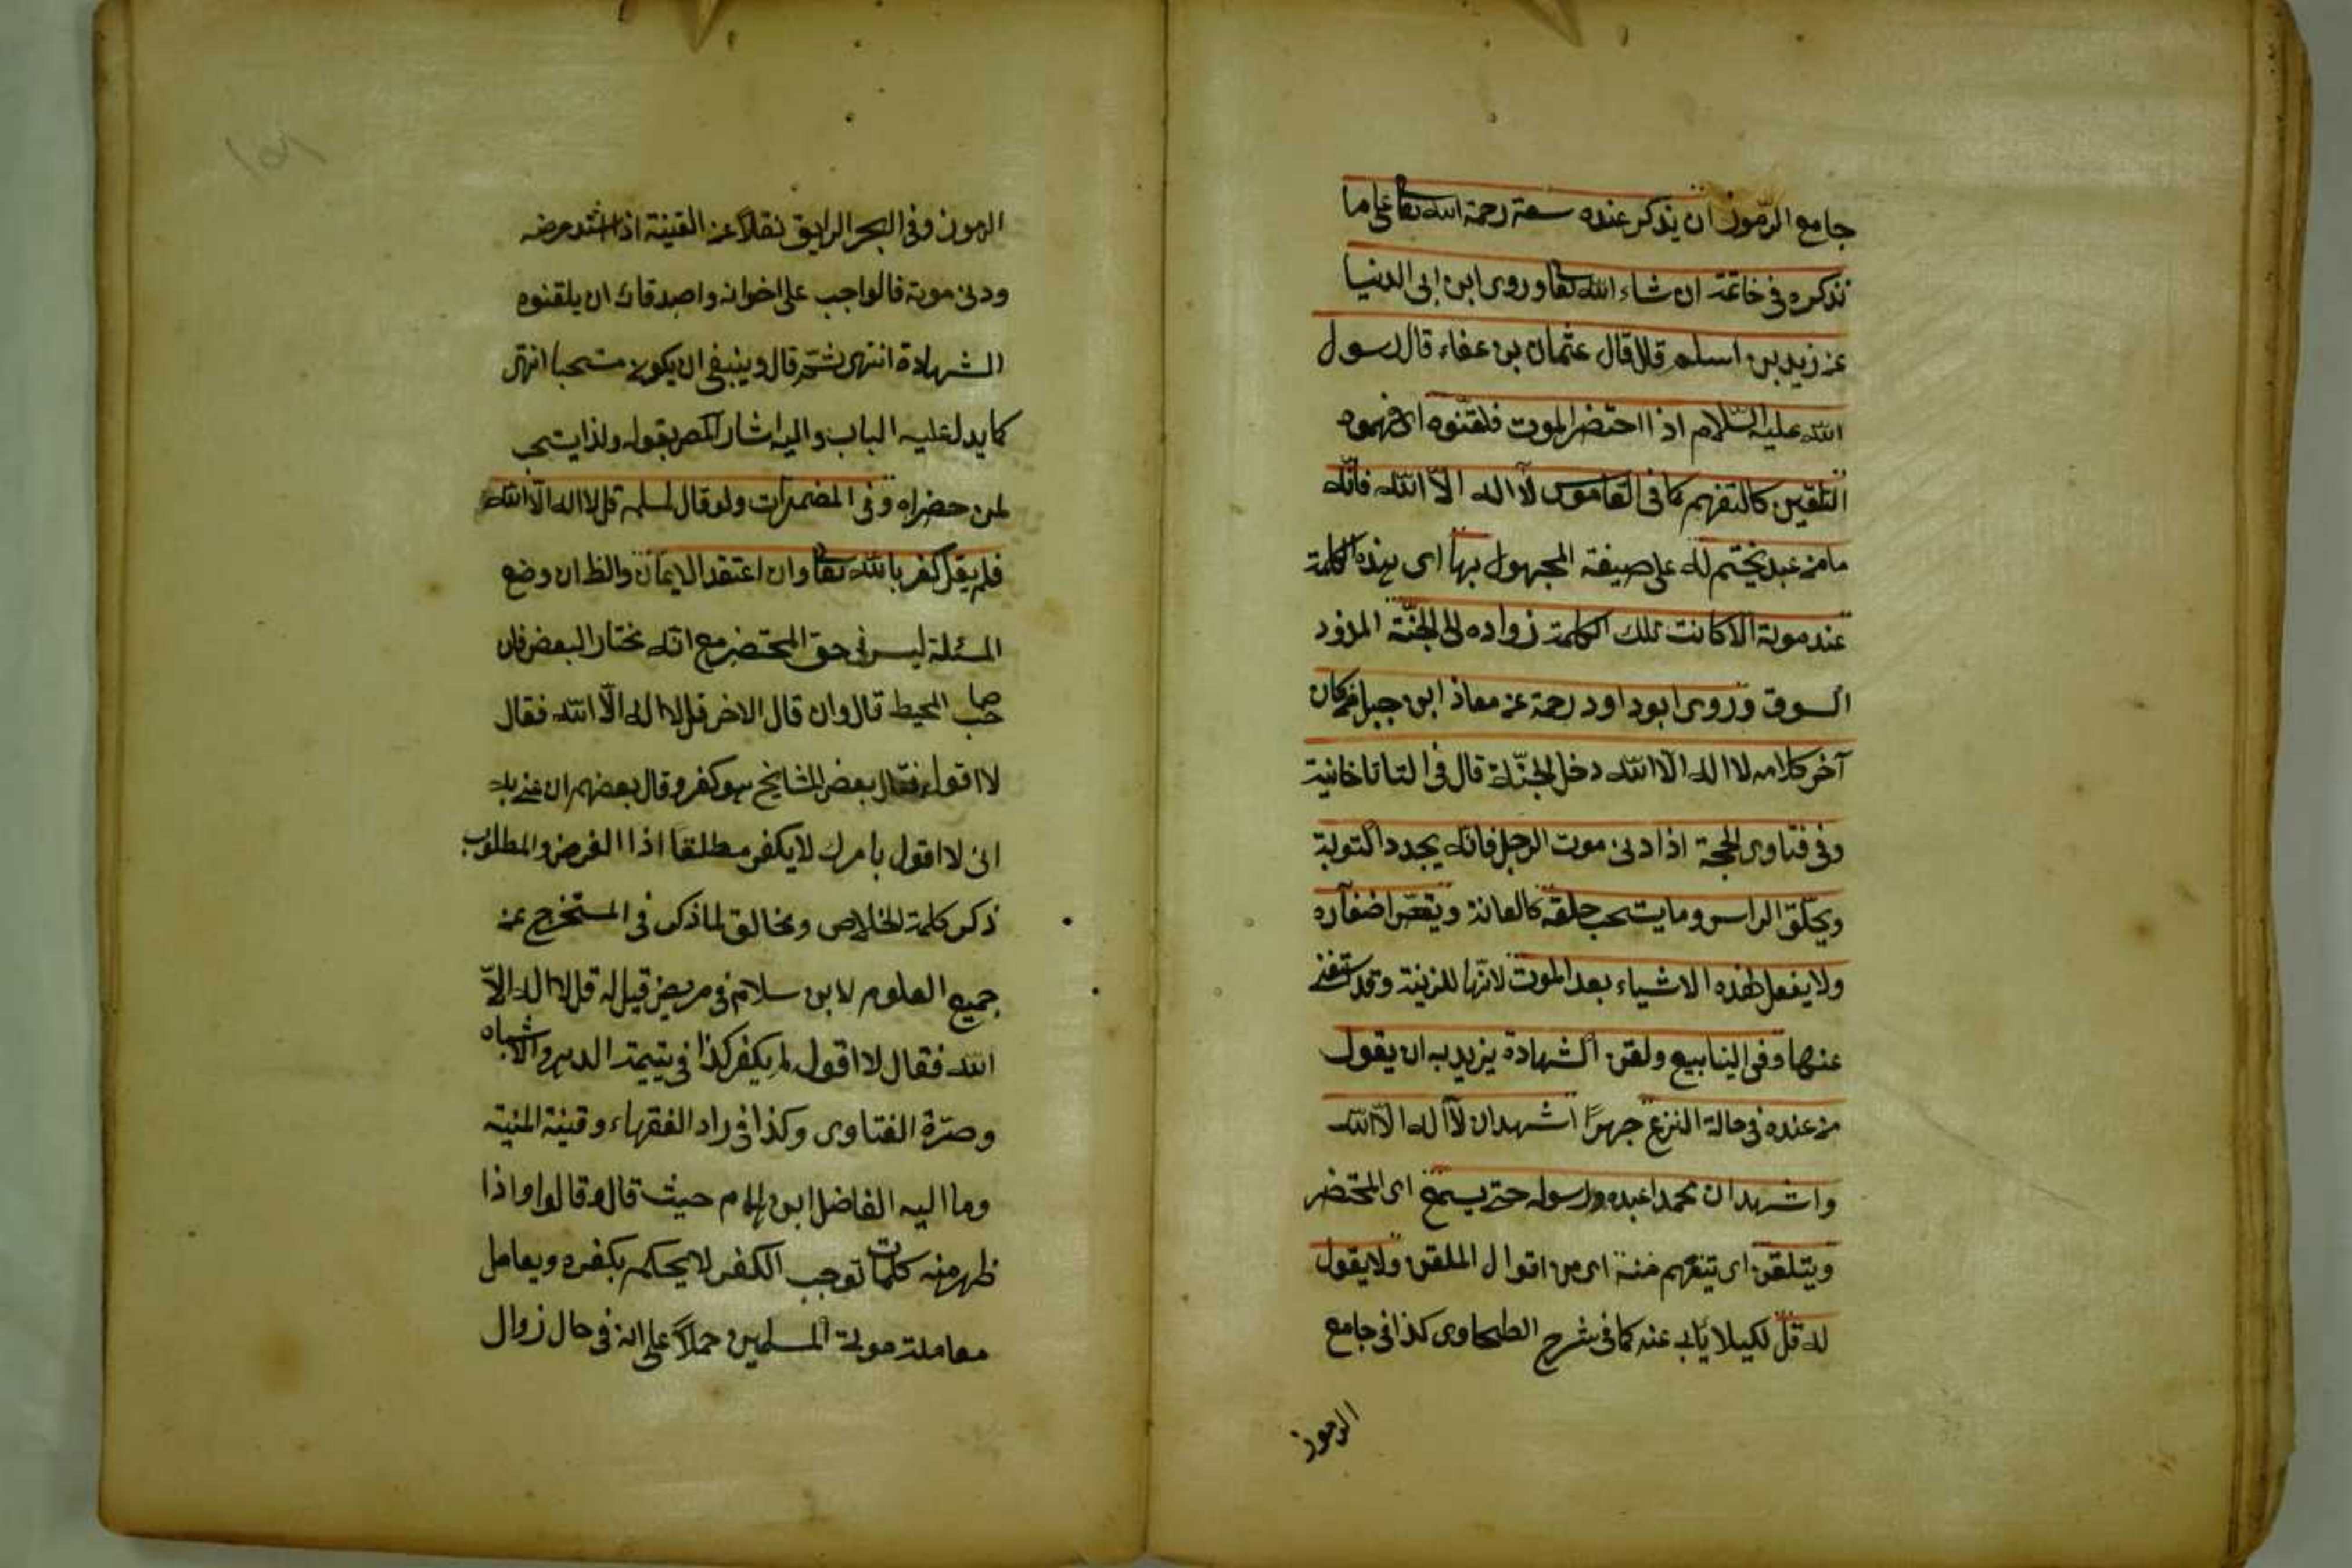 جامع الرموز ان يذكر عنده سعة رحمة الله تعا على ما
نذكره في خاتمته ان شاء الله تعا وروى ابن ابى الدنيا
عن زيد بن اسلم قال قال عثمان بن عفاء قال رسول
الله عليه السّلام اذا احتضر الموت فلقّنوه اى فهموه
التلقين كالتفهيم كما فى القاموس لا اله الّا الله فانّه
ما من عبد يختم له على صيغة المجهول بها اى بهذه الكلمة
عند موته الا كانت تلك الكلمة زواده الى الجنّة المزود
السوق وروى ابو داود رحمة عن معاذ ابن جبل فمن كان
آخر كلامه لا اله الّا الله دخل الجنّة قال فى التاتاخانية
وفى فتاوى الحجة اذا دنى موت الرجل فانّه يجدد التوبة
ويحلق الراس وما يستحب حلقه كالعانة ويقصّ اضفاره
ولا يفعل لهذه الاشياء بعد الموت لانّها للزينة وقد استغنى
عنها وفى الينابيع ولقن الشهادة يزيد به ان يقول
من عنده في حالة النزع جهرًا اشهد ان لا اله الّا الله
واشهد ان محمدا عبده ورسوله حتى يسمع اى المحتضر
ويتلقن اى يتفهم منه اى من اقوال الملقن ولا يقول
له قل لكيلا يابى عنه كما فى شرح الطحاوى كذا فى جامع
الرموز
الرموز وفى البحر الرايق نقلاً عن القنية اذا اشتد مرضه
ودنى موته فالواجب على اخوانه واصدقائه ان يلقنوه
الشهادة انتهى ثمّ قال وينبغى ان يكون مستحبا انتهى
كما يدل عليه الباب واليه اشار المص بقوله ولذا يستحب
لمن حضراه وفى المضمرات ولو قال لمسلم قل لا اله الّا الله
فلم يقل كفر بالله تعا وان اعتقد الايمان والظ ان وضع
المسئلة ليس فى حق المحتضر مع انّه مختار البعض فان
صاحب المحيط قال وان قال الاخر قل لا اله الّا الله فقال
لا اقول فقال بعض المشايخ هو كفر وقال بعضهم ان عنى به
انى لا اقول بامرك لا يكفر مطلقا اذا الغرض والمطلوب
ذكر كلمة الخلاص ومخالق لما ذكر فى المستخرج عن
جميع العلوم لابن سلام فى مريض قيل له قل لا اله الّا
الله فقال لا اقول لم يكفر كذا فى يتيمة الدهر والاشباه
وصرّة الفتاوى وكذا فى زاد الفقهاء وقنية المنية
وما اليه الفاضل ابن الهمام حيث قال وقالوا واذا
ظهر منه كلمات توجب الكفر لا يحكم بكفره ويعامل
معاملة موتى المسلمين حملاً على انه فى حال زوال